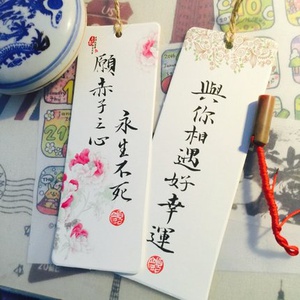 願赤子之心
永生不死
與你相遇好幸運